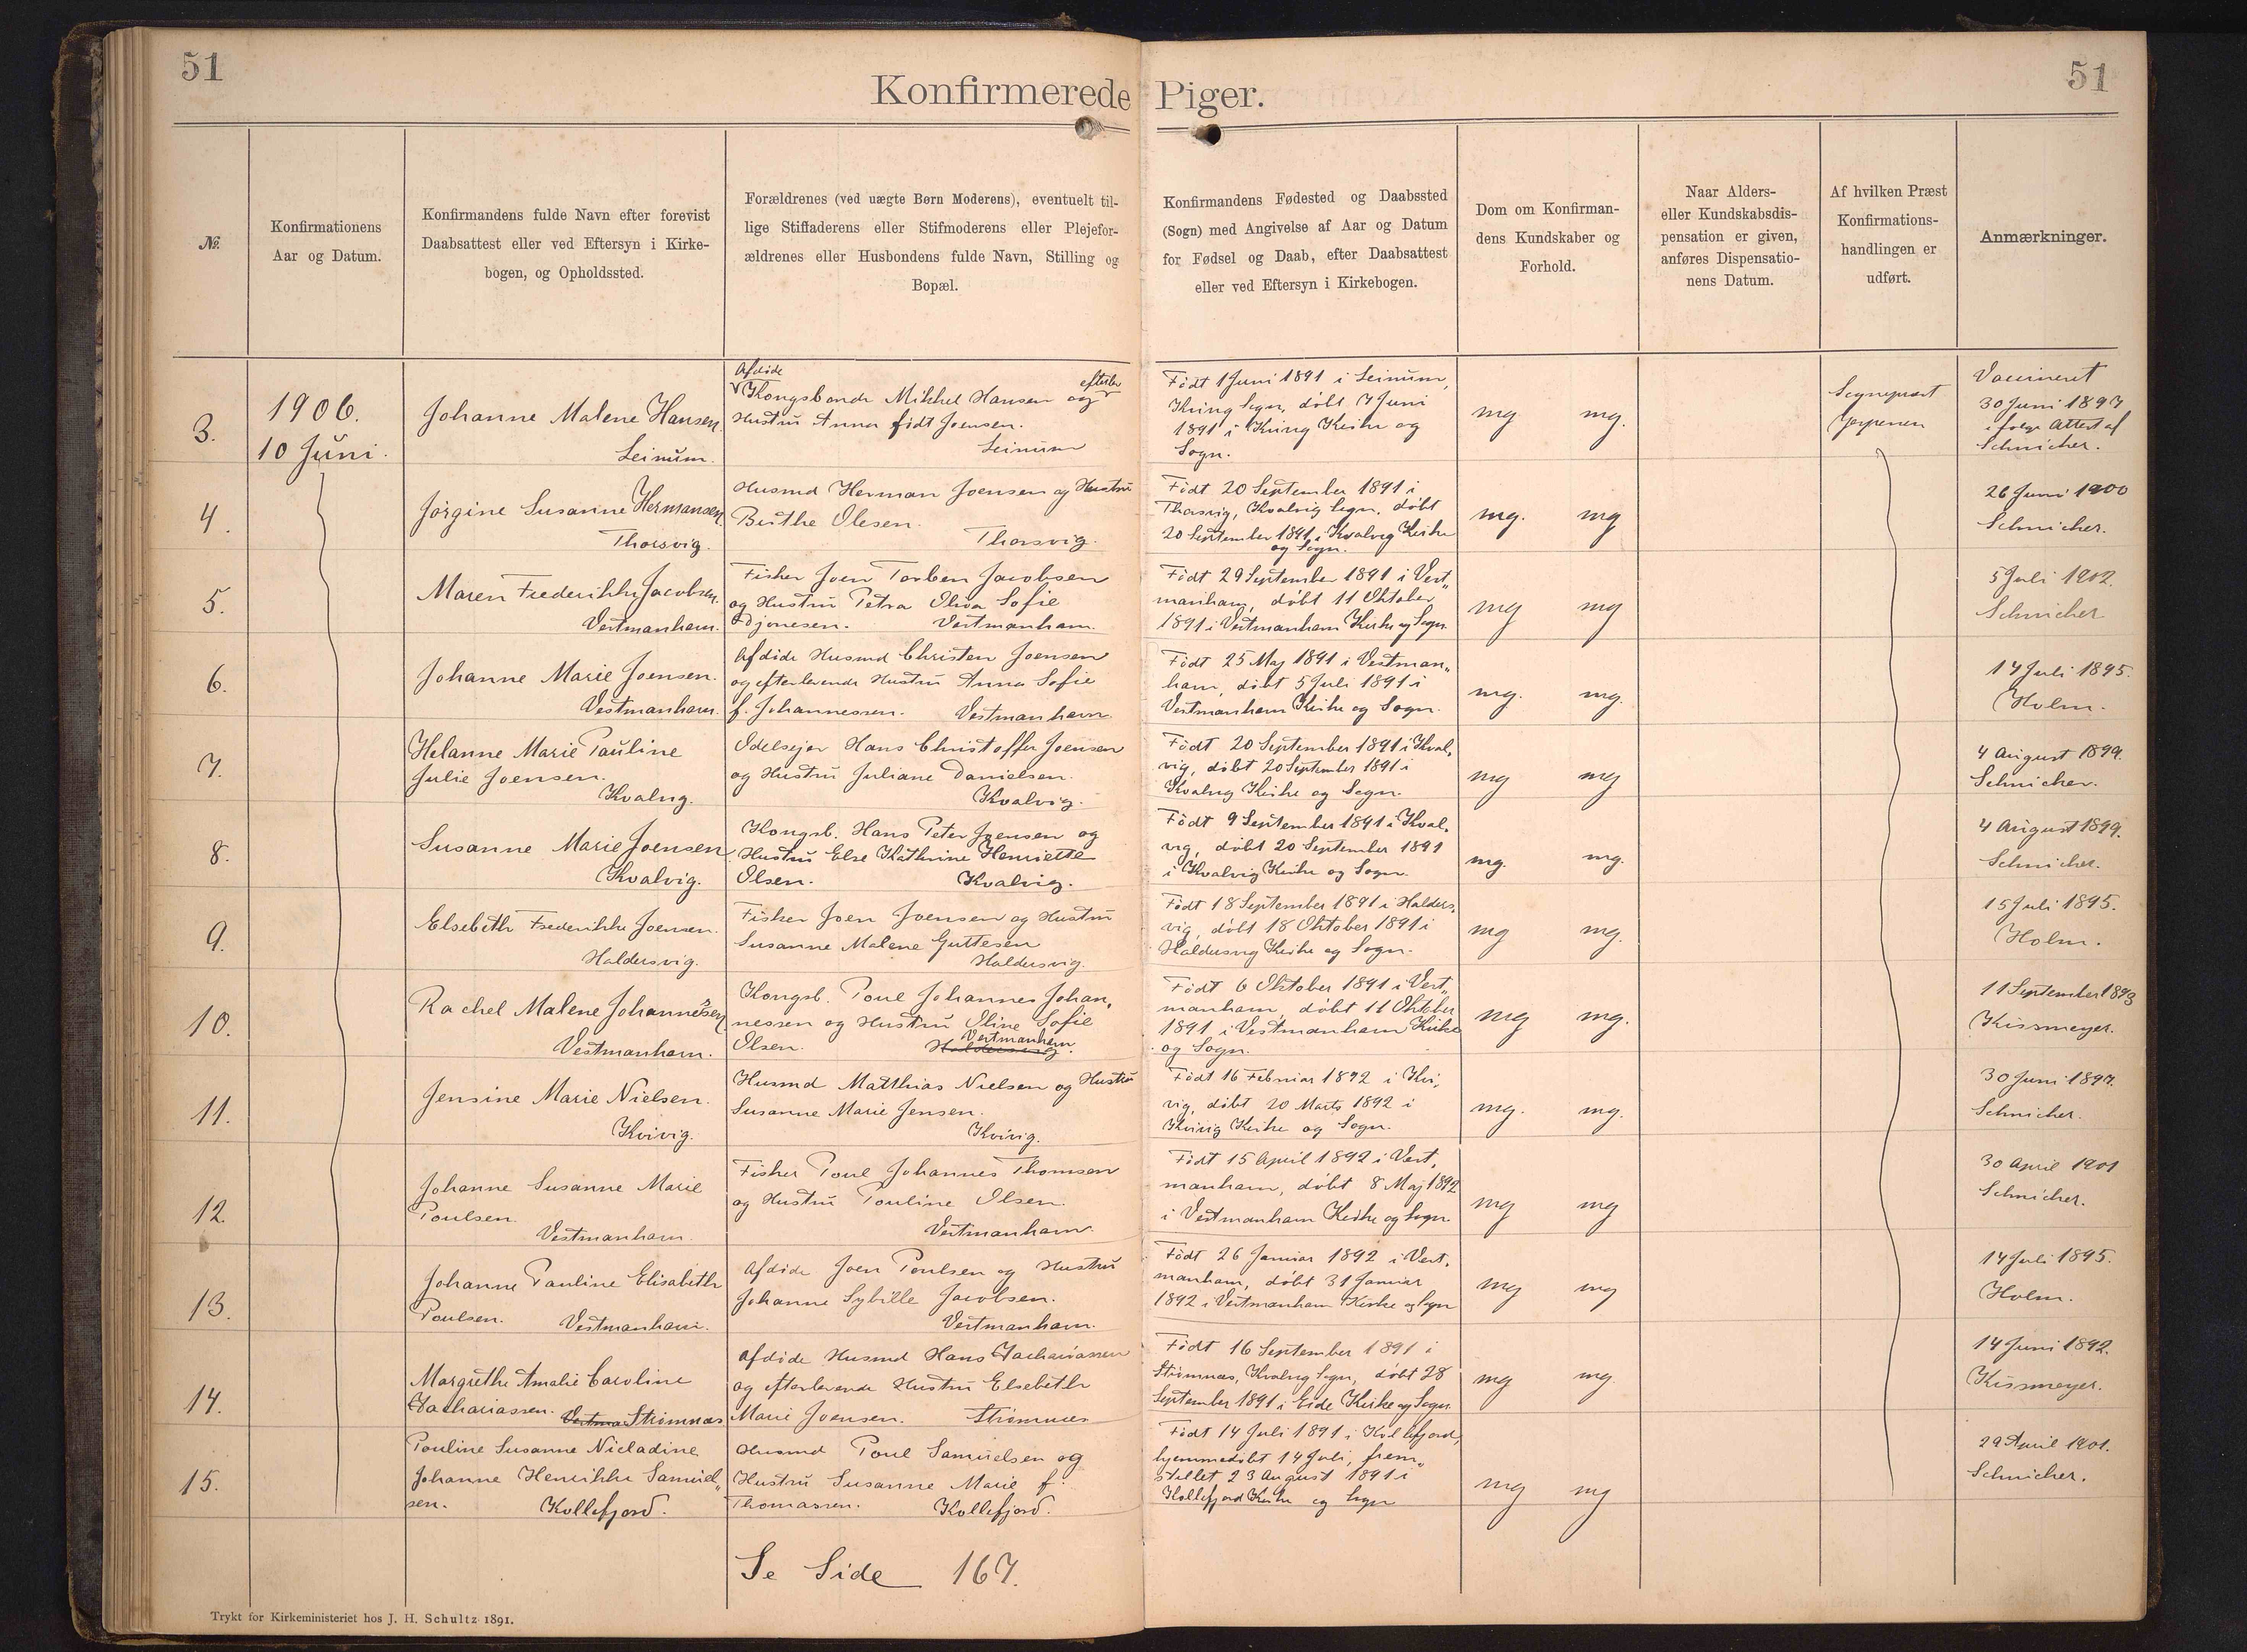 51
51
Konfirmerede Piger.
№
Konfirmationens
Aar og Datum.
Konfirmandens fulde Navn efter forevist
Daabsattest eller ved Eftersyn i Kirke-
bogen, og Opholdssted.
Forældrenes (ved uægte Børn Moderens), eventuelt til-
lige Stiffaderens eller Stifmoderens eller Plejefor-
ældrenes eller Husbondens fulde Navn, Stilling og
Bopæl.
Konfirmandens Fødested og Daabssted
(Sogn) med Angivelse af Aar og Datum
for Fødsel og Daab, efter Daabsattest
eller ved Eftersyn i Kirkebogen.
Dom om Konfirman-
dens Kundskaber og
Forhold.
Naar Alders-
eller Kundskabsdis-
pensation er given,
anføres Dispensatio-
nens Datum.
Af hvilken Præst
Konfirmations-
handlingen er
udført.
Anmærkninger.
3.
1906.
10 Juni.
Johanne Malene Hansen.
Leinum.
Afdøde
Kongsbonde Mikkel Hansen og efterlev
Hustru Anna født Joensen.
Leinum
Født 1 Juni 1891 i Leinum,
Sogn, døbt 7 Juni
1891 i Kirke og
Sogn.
mg mg.
Sognepræst
Vaccineret
30 Juni 1897
i følge Attest af
Schnicher.
4.
Jørgine Susanne Hermansen
Thorsvig.
Husmd Herman Joensen og Hustru
Birthe Olesen.
Thorsvig.
Født 20 September 1891 i
Thorsvig, Kvalvig Sogn, døbt
20 September 1891 i Kvalvig Kirke
og Sogn.
mg. mg
26 Juni 1900
Schnicher.
5.
Maren Frederikke Jacobsen.
Vestmanhavn.
Fisker Joen Torben Jacobsen
og Hustru Petra Oliva Sofie
Djonesen. Vestmanhavn.
Født 29 September 1891 i Vest„
manhavn, døbt 11 Oktober
1891 i Vestmanhavn Kirke og Sogn
mg mg
5 Juli 1902.
Schnicher
6.
Johanne Marie Joensen.
Vestmanhavn.
Afdøde Husmd Christen Joensen
og efterlevende Hustru Anna Sofie
f. Johannessen. Vestmanhavn.
Født 25 Maj 1891 i Vestman„
havn, døbt 5 Juli 1891 i
Vestmanhavn Kirke og Sogn.
mg. mg.
14 Juli 1895.
Holm.
7.
Helanne Marie Pauline
Julie Joensen.
Kvalvig.
Odelsejer Hans Christoffer Joensen
og Hustru Juliane Danielsen.
Kvalvig.
Født 20 September 1891 i Kval„
vig, døbt 20 September 1891 i
Kvalvig Kirke og Sogn.
mg mg
4 August 1899.
Schnicher.
8.
Susanne Marie Joensen
Kvalvig.
Kongsb. Hans Peter Joensen og
Hustru Else Kathrine Henriette
Olsen. Kvalvig.
Født 9 September 1891 i Kval„
vig, døbt 20 September 1891
i Kvalvig Kirke og Sogn.
mg. mg.
4 August 1899.
Schnicher.
9.
Elsebeth Frederikke Joensen.
Haldersvig.
Fisker Joen Joensen og Hustru
Susanne Malene Guttesen
Haldersvig.
Født 18 September 1891 i Halders„
vig, døbt 18 Oktober 1891 i
Haldersvig Kirke og Sogn.
mg mg.
15 Juli 1895.
Holm.
10.
Rachel Malene Johannessen
Vestmanhavn.
Kongsb. Poul Johannes Johan„
nessen og Hustru Oline Sofie
Olsen. Haldersvig Vestmanhavn.
Født 6 Oktober 1891 i Vest„
manhavn, døbt 11 Oktober
1891 i Vestmanhavn Kirke
og Sogn.
mg mg.
11 September 1893
Kissmeyer.
11.
Jensine Marie Nielsen.
Kvivig.
Husmd Matthias Nielsen og Hustru
Susanne Marie Jensen.
Kvivig.
Født 16 Februar 1892 i Kvi„
vig, døbt 20 Marts 1892 i
Kvivig Kirke og Sogn.
mg. mg.
30 Juni 1897.
Schnicher.
12.
Johanne Susanne Marie
Poulsen.
Vestmanhavn.
Fisker Poul Johannes Thomsen
og Hustru Pouline Olsen.
Vestmanhavn.
Født 15 April 1892 i Vest„
manhavn, døbt 8 Maj 1892
i Vestmanhavn Kirke og Sogn.
mg mg
30 April 1901
Schnicher.
13.
Johanne Pauline Elisabeth
Poulsen. Vestmanhavn.
Afdøde Joen Poulsen og Hustru
Johanne Sybille Jacobsen.
Vestmanhavn.
Født 26 Januar 1892 i Vest„
manhavn, døbt 31 Januar
1892 i Vestmanhavn Kirke og Sogn
mg mg
14 Juli 1895.
Holm.
14.
Margrethe Amalie Caroline
Zachariassen. Vestma Strømnæs
Afdøde Husmd Hans Zachariassen
og efterlevende Hustru Elsebeth
Marie Joensen. Strømnæs
Født 16 September 1891 i
Strømnæs, Kvalvig Sogn, døbt 28
September 1891 i Eide Kirke og Sogn.
mg mg.
14 Juni 1892.
Kissmeyer.
15.
Pouline Susanne Nicladine
Johanne Henrikke Samuel„
sen. Kollefjord.
Husmd Poul Samuelsen og
Hustru Susanne Marie f.
Thomassen. Kollefjord.
Født 14 Juli 1891 i Kollefjord,
hjemmedøbt 14 Juli, frem„
stillet 23 August 1891 i
Kollefjord Kirke og Sogn
mg mg
29 April 1901.
Schnicher.
Se Side 167.
Trykt for Kirkeministeriet hos J. H. Schultz 1891.